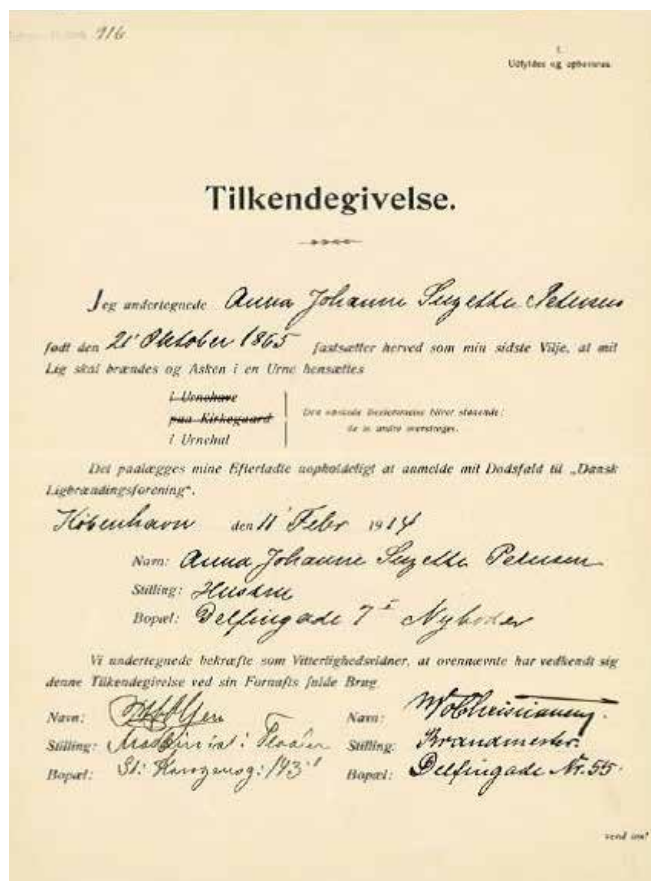 916
1.
Udfyldes og opbevares.
Tilkendegivelse.
Jeg undertegnede Anna Johanne Suzette Petersen
født den 21' Oktober 1865 fastsætter herved som min sidste Vilje, at mit
Lig skal brændes og Asken i en Urne hensættes
i Urnehave
paa Kirkegaard
i Urnehal
Den ønskede Bestemmelse bliver staaende;
de to andre overstreges.
Det paalægges mine Efterladte uopholdeligt at anmelde mit Dødsfald til „Dansk
Ligbrændingsforening".
København den 11' Febr 1914
Navn: Anna Johanne Suzette Petersen
Stilling: Hustru
Bopæl: Delfingade 7 I Nyboder
Vi undertegnede bekræfte som Vitterlighedsvidner, at ovennævnte har vedkendt sig
denne Tilkendegivelse ved sin Fornufts fulde Brug
Navn:
Stilling: Maskinist i Flaaden
Bopæl: St:
Navn: Christiansen
Stilling: Brandmester
Bopæl: Delfingade Nr. 55.
vend om!